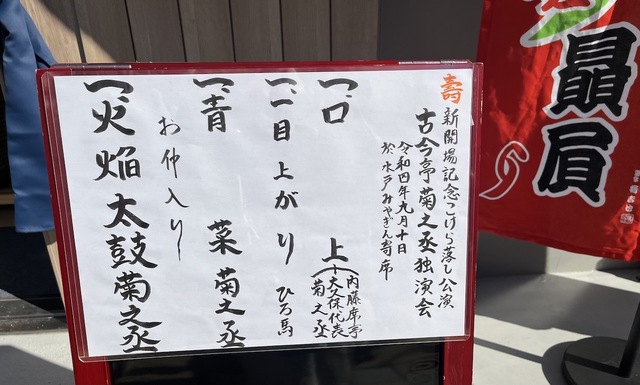 壽
新開場記念こけら落し公演
古今亭菊之丞独演会
令和四年九月十日
於 水戸みやぎん寄席
一、口上(内藤席亭
十大久保代表
菊之丞
一、一目上がり ひろ馬
一、青菜 菊之丞
お仲入り
一、火焔太鼓 菊之丞
贔屓